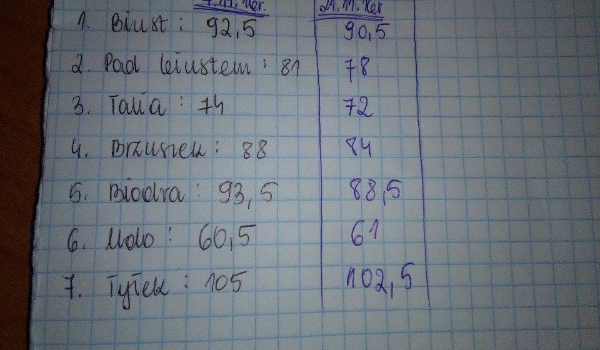 7.11.16r. 21.11.16r
1. Biust : 92,5 90,5
2. Pod biustem : 81 78
3. Talia : 74 72
4. Brzuszek : 88 84
5. Biodra : 93,5 88,5
6. Udo : 60,5 61
7. Tyłek : 105 102,5